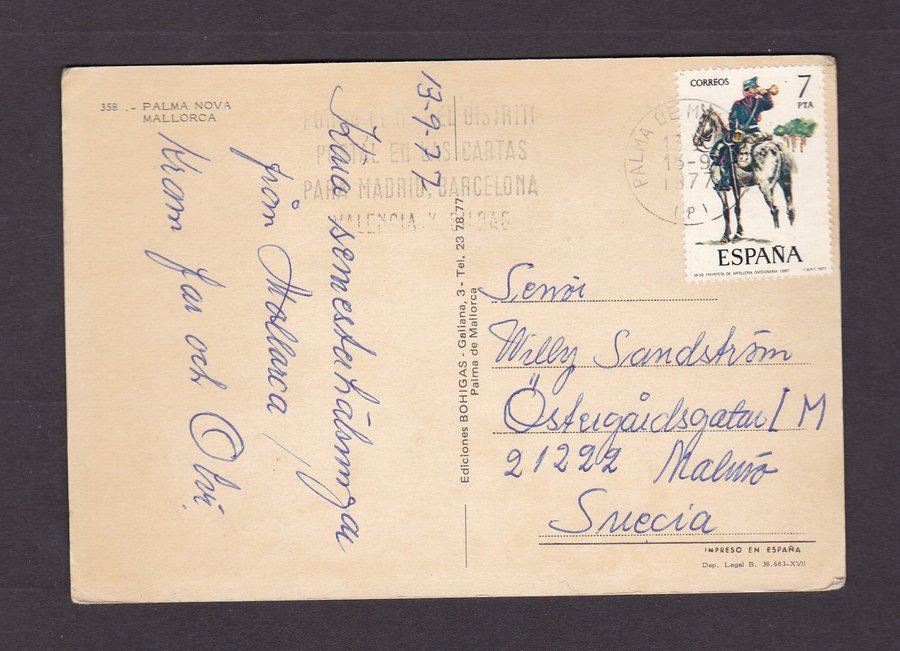 358 .- PALMA NOVA
MALLORCA
13-9-77
Kära semesterhälsningar
från Mallorca,
Kram Jan och Olvi.
PONGA EL DISTRITO
POSTAL EN LAS CARTAS
PARA MADRID, BARCELONA
VALENCIA Y BILBAO
PALMA DE M
15-9
1977
CORREOS
7
PTA
ESPAÑA
Ediciones BOHIGAS - Galiana, 3 - Tel. 23 78 77
Palma de Mallorca
Senor
Willy Sandström
Östergårdsgatan 1 M
21222 Malmö
Suecia
IMPRESO EN ESPAÑA
Dep. Legal B. 38.683-XVII